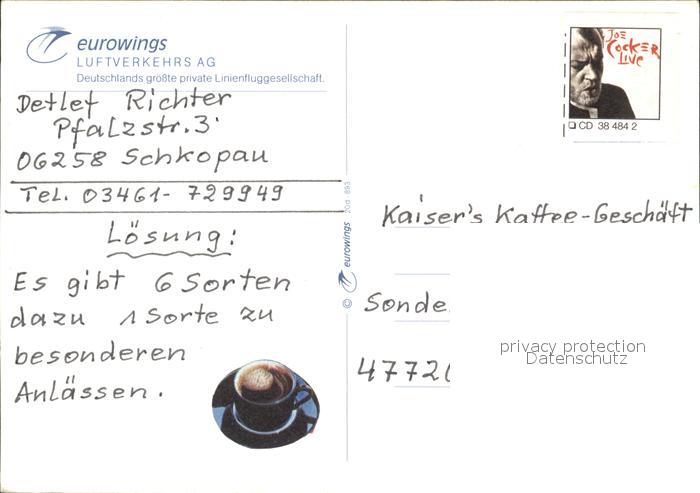 eurowings
LUFTVERKEHRS AG
Deutschlands größte private Linienfluggesellschaft.
Detlef Richter
Pfalzstr. 3
06258 Schkopau
Tel. 03461-729949
Lösung:
Es gibt 6 Sorten
dazu 1 Sorte zu
besonderen
Anlässen.
© eurowings 20d 893
JOE
COCKER
LIVE
CD 38 484 2
Kaiser's Kaffee-Geschäft
Sonde
4772
privacy protection
Datenschutz